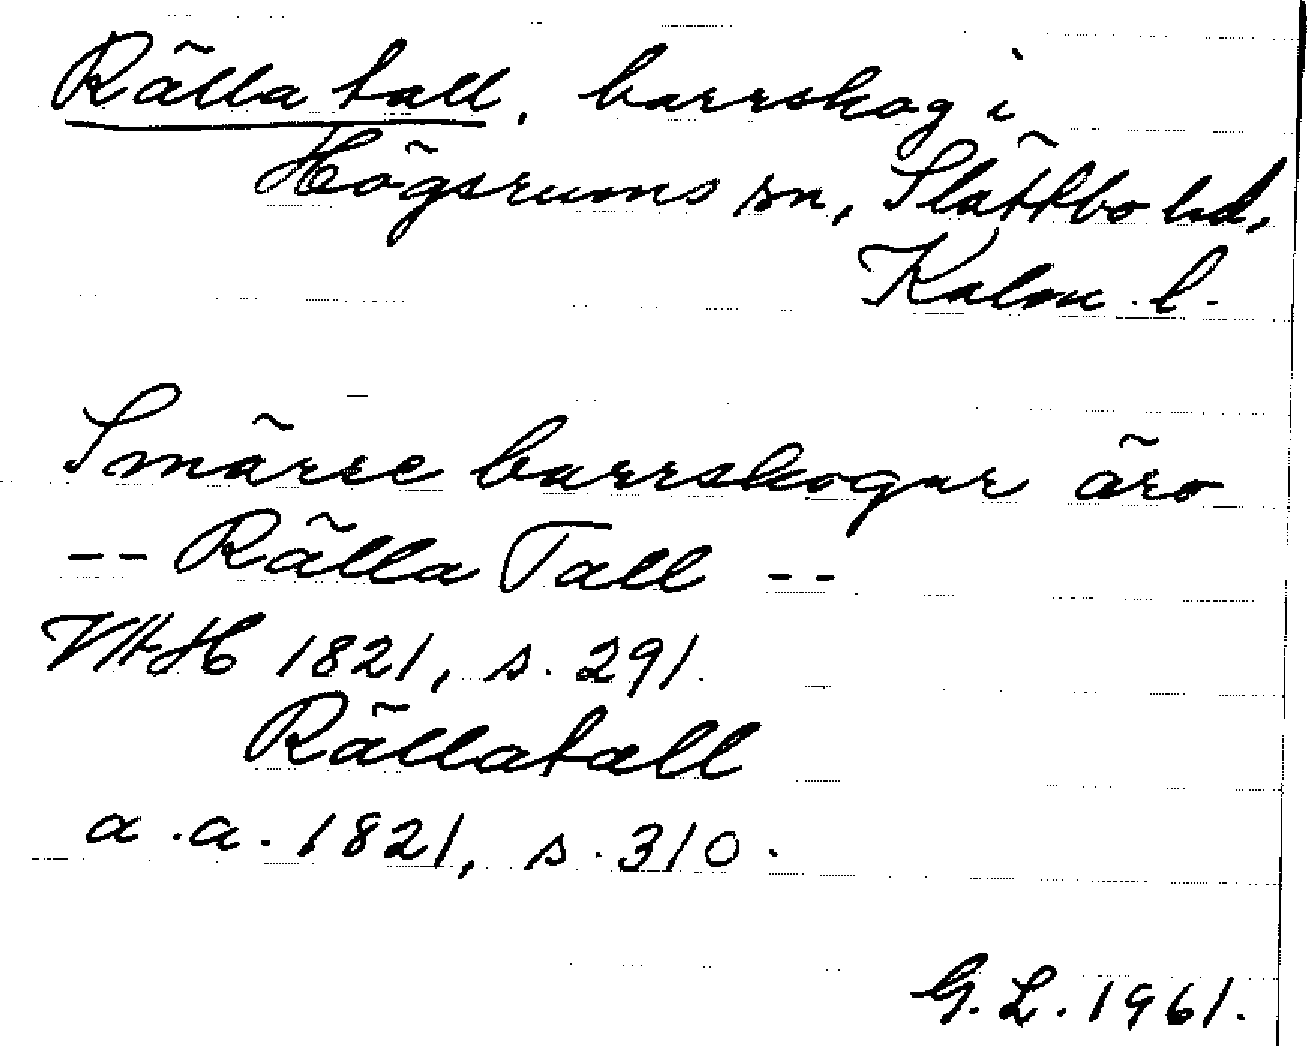 Rälla tall, barrskog i
Högsrums sn, Slättbo hd,
Kalm. l.
Smärre barrskogar äro
-- Rälla Tall --
VHAH 1821, s. 291.
Rällatall
a.a. 1821, s. 310.
G. L. 1961.